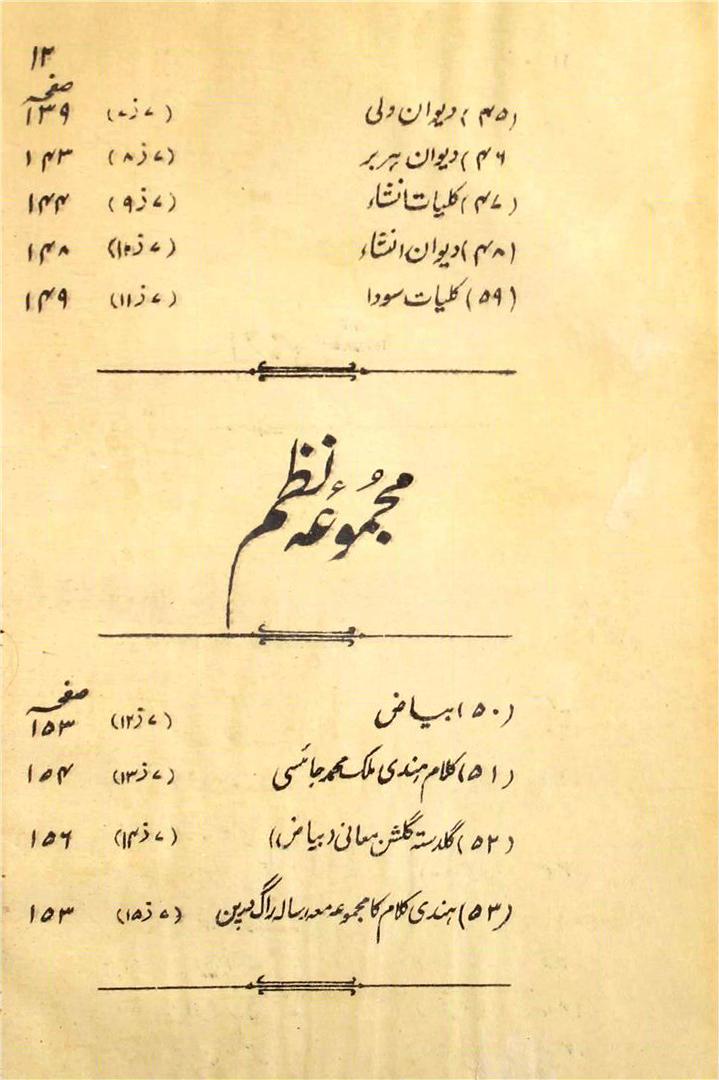 ۱۲
صفحہ
(۴۵) دیوان ولی (۷ ذ ۷) ۱۳۹
۴۶) دیوان ہربر (۷ ذ ۸) ۱۴۳
(۴۷) کلیات انشاء (۷ ذ ۹) ۱۴۴
(۴۸) دیوان انشاء (۷ ذ ۱۰) ۱۴۸
(۵۹) کلیات سودا (۷ ذ ۱۱) ۱۴۹
مجموعۂ نظم
صفحہ
(۵۰) بیاض (۷ ذ ۱۲) ۱۵۳
(۵۱) کلام ہندی ملک محمد جائسی (۷ ذ ۱۳) ۱۵۴
(۵۲) گلدستہ گلشن معانی (بیاض) (۷ ذ ۱۴) ۱۵۶
(۵۳) ہندی کلام کا مجموعہ معہ رسالہ راگ درپن (۷ ذ ۱۵) ۱۵۳